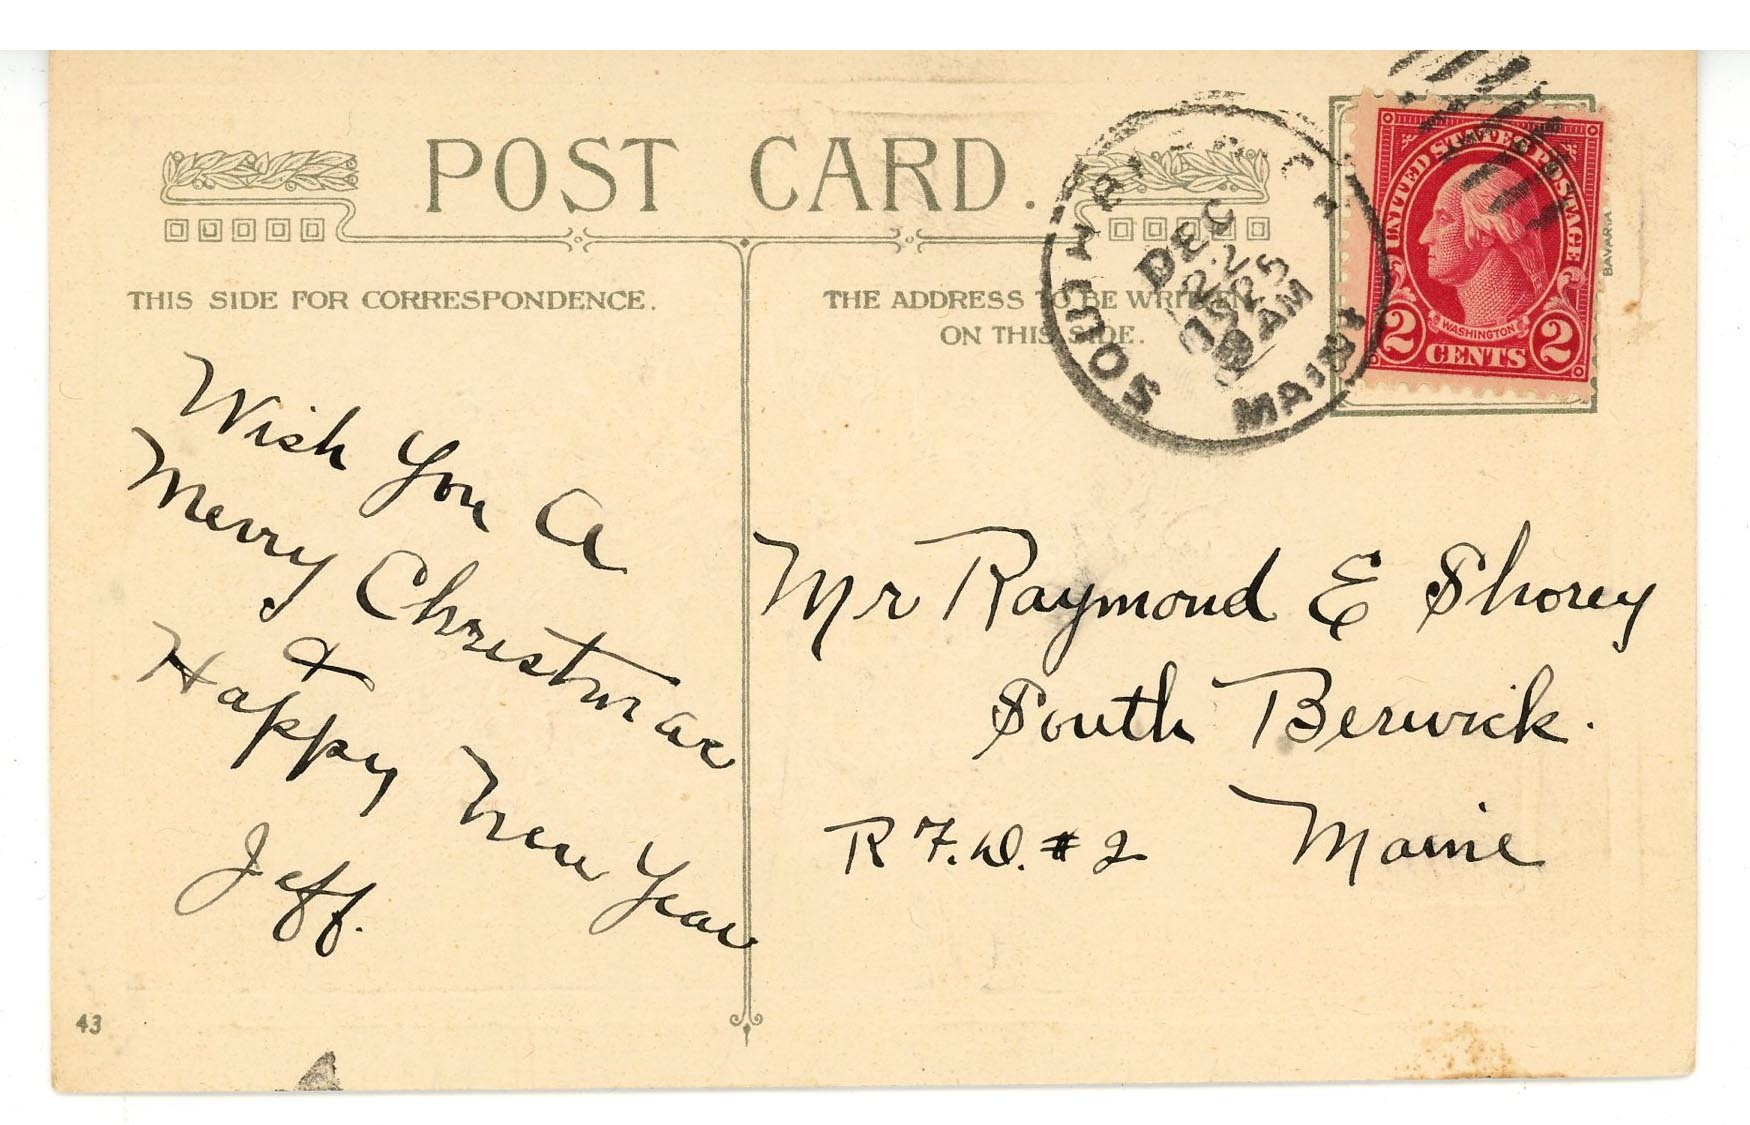 POST CARD.
THIS SIDE FOR CORRESPONDENCE.
THE ADDRESS TO BE WRITTEN
ON THIS SIDE.
DEC
22
1925
AM
MAINE
UNITED STATES POSTAGE
WASHINGTON
2 CENTS 2
BAVARIA
Wish You A
Merry Christmas
&
Happy New Year
Jeff.
Mr Raymond E Shorey
South Berwick.
R F.D. #2 Maine
43